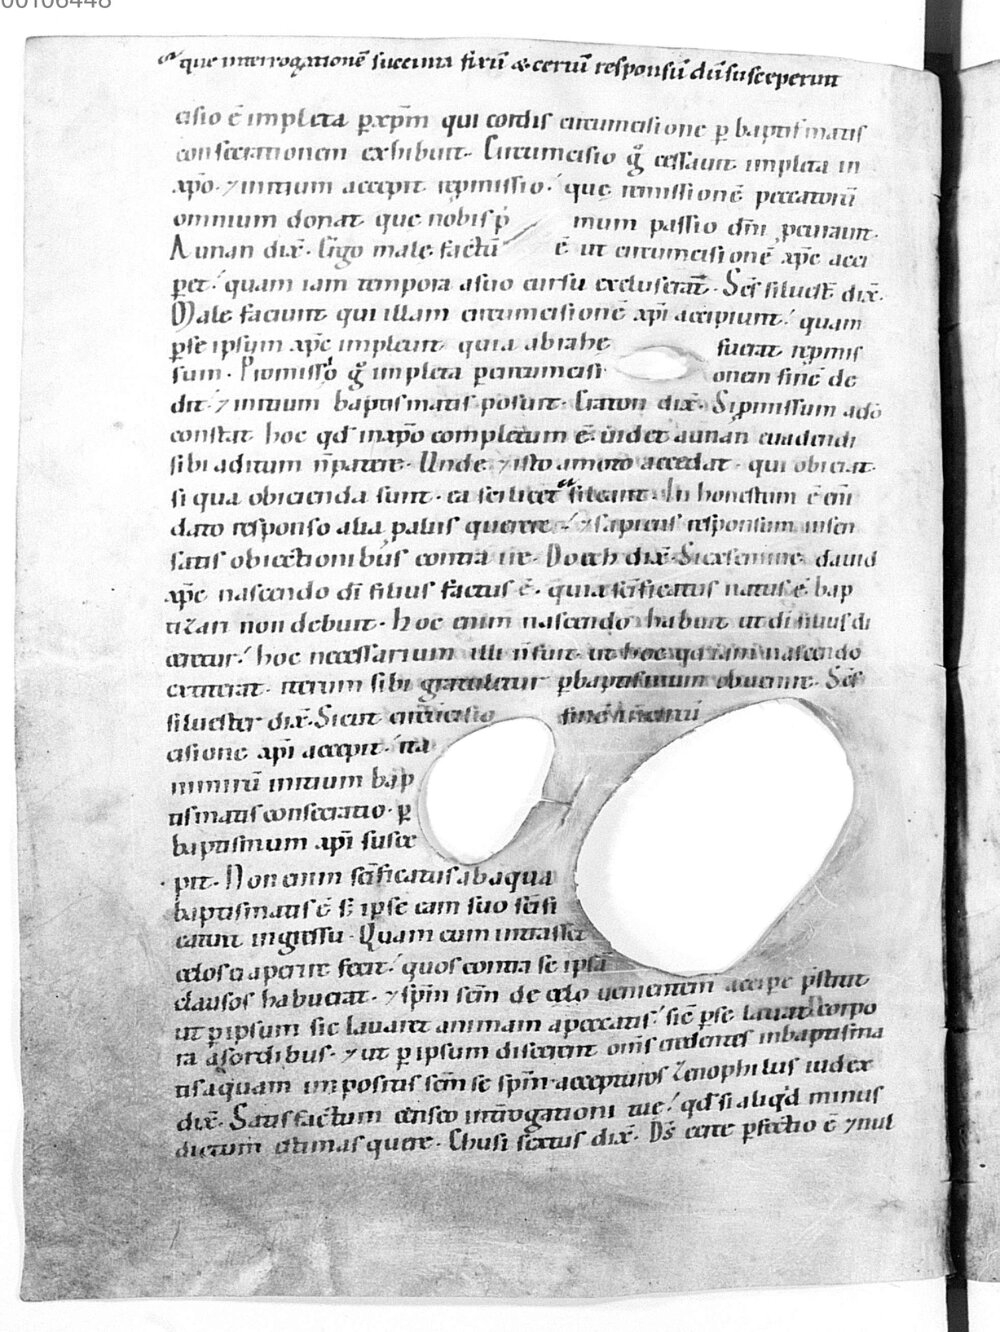 00106448
que interrogationē succincta firū & certū responsū dū susceperunt
cisio ē impleta p xp̄m qui cordis circumcisione p baptismatis
consecrationem exhibuit. Circumcisio g̊ cessauit impleta in
xp̄o. ⁊ initium accepit repmissio. que remissionē peccatorū
omnium donat que nobis p̄ mum passio dn̄i peturauit.
Aunan dix̄. Ergo male factū ē ut circumcisionē xp̄c acci
peret. quam iam tempora astro cursu excluserat. Scs̄ siluest̄ dix̄.
Male faciunt qui illam circumcisionē xp̄i accipiunt. quam
p se ipsum xp̄c impleuit quia abrahe fuerat repmis
sum. Promisso g̊ impleta p circumcisi onem finē de
dit. ⁊ initium baptismatis posuit. Craton dix̄. Si pmissum adō
constat hoc qd̄ in xp̄o completum ē. uidet aunan euadendi
sibi aditum n̄ patere. Unde ⁊ isto amoto accedat. qui obiciat.
si qua obicienda sunt. ea scilicet sileant. In honestum ē eni
dato responso alia palus querere. ⁊ sapientis responsum insen
satis obiectionibus contra ire. Doech dix̄. Si ex semine dauid
xp̄c nascendo dī filius factus ē. quia scīficatus natus ē. bap
tizari non debuit. hoc enim nascendo habuit ut dī filius di
ceretur. hoc necessarium illi n̄ fuit. ut hoc qd̄ iam nascendo
extiterat. iterum sibi gratularetur p baptismum obuenire. Scs̄
siluester dix̄. Sicut circūcisio finē in circū
cisione xp̄i accepit. ita
nimirū initium bap
tismatis consecratio. p
baptismum xp̄i susce
pit. Non enim scīficatus ab aqua
baptismatis ē s; ipse eam suo scīfi
cauit ingressu. Quam cum intrasset
celos ei aperire fecit. quos contra se ipsa
clausos habuerat. ⁊ sp̄m scm̄ de celo uenientem accipe p̄stitit
ut p ipsum sic lauaret animam a peccatis. sic p se lauat corpo
ra a sordibus. ⁊ ut p ipsum discerent om̄s credentes in baptisma
tis aquam impositis scm̄ se sp̄m accepturos Zenophilus iudex
dix̄. Satisfactum censeo int̄rogationi tue. qd̄ si aliqd̄ minus
dictum estimas quere. Chusi sextus dix̄. Ds̄ certe pfectio ē ⁊ nul